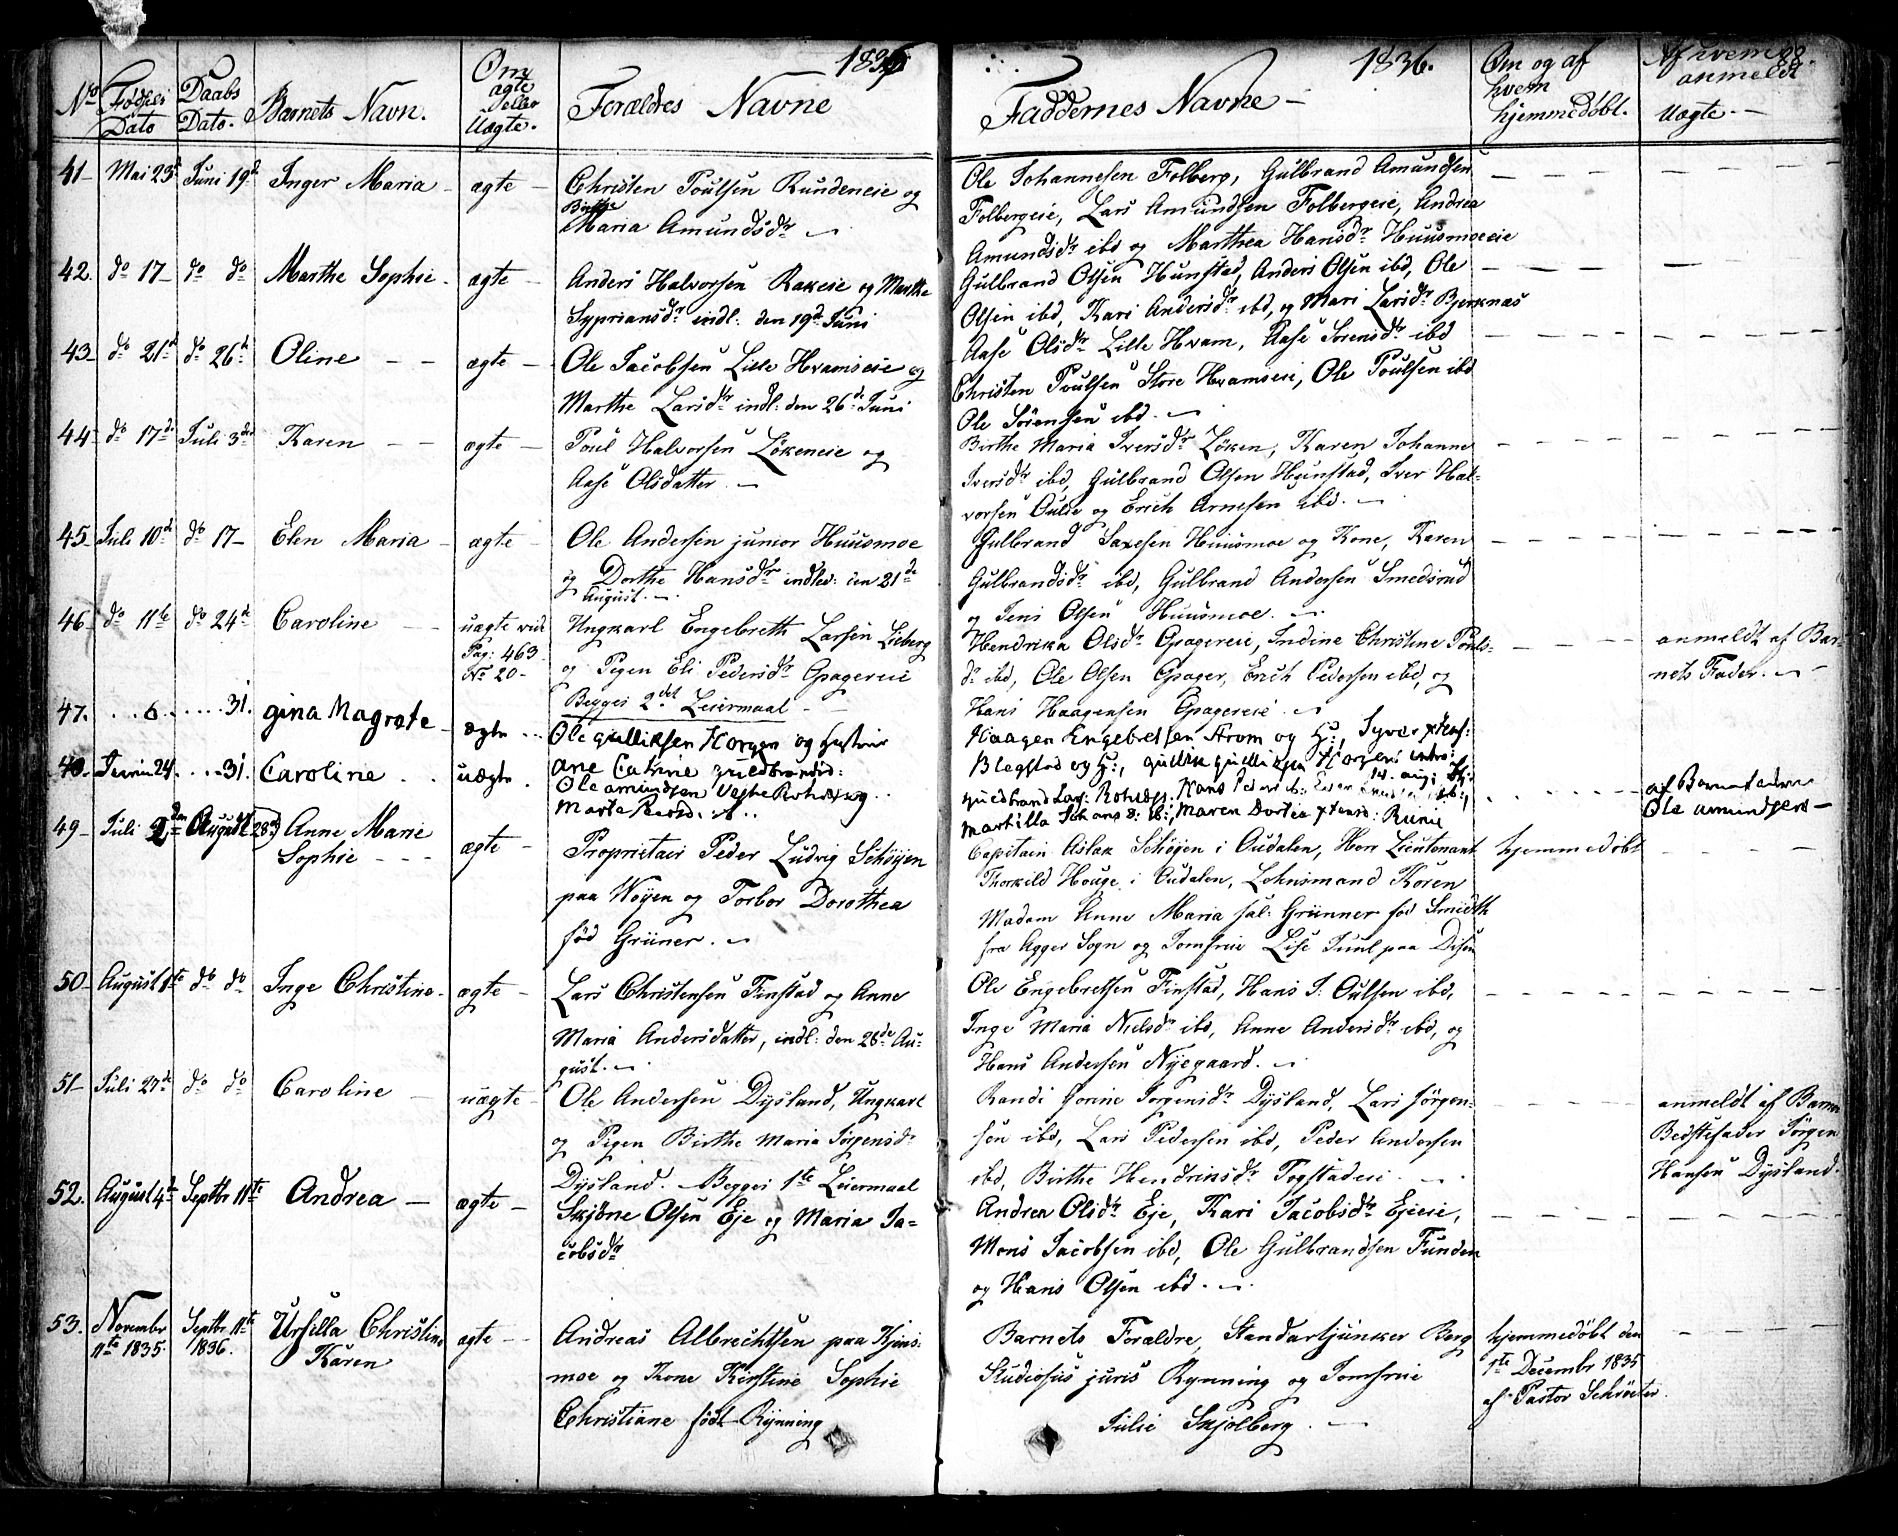 1836.
No
Fødsels Dato
Daabs Dato.
Barnets Navn.
Om ægte eller Uægte.
Forældres Navne
1836.
88.
Faddernes Navne –
Om og af hvem hjemmedøbt.
Af hvem anmeldt Uægte. –
41 – Mai 23d Juni 19d Inger Maria – ægte –
Christen Poulsen Rundeneie og
Birthe
Maria Amundsdr
Ole Johannesen Folberg, Gulbrand Amundsen
Folbergeie, Lars Amundsen Folbergeie, Andrea
Amundsdr ibd og Marthea Hansdr Huusmoeeie
42. do 17 – do do Marthe Sophie – ægte –
Anders Halvorsen Rakeie og Marthe
Sypriansdr indl: den 19d Juni
Gulbrand Olsen Hunstad, Anders Olsen ibd, Ole
Olsen ibd, Kari Andersdr ibd, og Mari Larsdr Bjerknæs
43 – do 21d do 26d Oline – – ægte –
Ole Jacobsen Lille Hvamseie og
Marthe Larsdr indl: den 26de Juni
Aase Olsdr Lille Hvam, Aase Sørensdr ibd
Christen Poulsen Store Hvamseie, Ole Poulsen ibd
Ole Sørensen ibd.
44 – do 17de Juli 3de Karen – – ægte –
Poul Halvorsen Løkeneie og
Aase Olsdatter. –
Birthe Maria Iversdr Løken, Karen Johanne
Iversdr ibd, Gulbrand Olsen Hunstad, Iver Hal-
vorsen Oulie og Erich Arnesen ibd. –
45 – Juli 10d do 17 – Elen Maria – ægte –
Ole Andersen junior Huusmoe
og Dorthe Hansdr indled: den 21de
August. –
Gulbrand Saxesen Huusmoe og Kone, Karen
Gulbrandsdr ibd, Gulbrand Andersen Smedsrud
og Jens Olsen Huusmoe.
46 – do 11te do 24d Caroline – uægte vid
Pag: 463
No 20 –
Ungkarl Engebreth Larsen Lieberg
og Pigen Eli Pedersdr Opagereie
Begges 2det Leiermaal –
Hendrika Olsdr Opagereie, Indine Christine Pouls-
dr ibd, Ole Olsen Opager, Erich Pedersen ibd, og
Hans Haagensen Opagereie
anmeldt af Bar-
nets Fader. –
47. . . 6 . . . . 31. gina Magrate – ægte . . .
Ole gulliksen Horgen og hustrue
ane Catrine guldbrandsd:
Haagen Engebretsen Strom og H:, Syver
Blegstad og H:, gullik gulliksen Horgen
48. Juni 24 . . . 31. Caroline . . uægte .
Ole amundsen
Marte
guldbrand Lars: Hans Peders: ib:
Martilla ib:, Maren Dortea
af Barnefaderen
Ole amundsen –
49 – Juli 2den August 28de Anne Marie
Sophie – – – ægte –
Proprietair Peder Ludvig Schøyen
paa Woyen og Torbor Dorothea
fød Grüner. –
Capitain Aslak Schøyen i Oudalen, Herr Lieutenant
Thorkild Houge i Oudalen, Lehnsmand Koren
Madam Anne Maria sal: Grünner fød Smidth
fra Agger Sogn og Jomfrue Lise Juul paa Disen
hjemmedøbt
50 – August 1te do do Inge Christine – ægte –
Lars Christensen Finstad og Anne
Maria Andersdatter, indl: den 28de Au-
gust. –
Ole Engebretsen Finstad, Hans J: Oulsen ibd,
Inge Maria Nielsdr ibd, Anne Andersdr ibd, og
Hans Andersen Nyegaard. –
51 – Juli 27de do do Caroline – uægte –
Ole Andersen Dysland, Ungkarl
og Pigen Birthe Maria Jørgensdr
Dysland. – Begges 1te Leiermaal
Randi Jorine Jørgensdr Dysland, Lars Jørgen-
sen ibd, Lars Pedersen ibd, Peder Andersen
ibd, Birthe Hendrinsdr Togstadeie
anmeldt af Barnets
Bedstefader Jørgen
Hansen Dysland.
52. August 4de Septbr 11te Andrea – ægte –
Skjøne Olsen Eje og Maria Ja-
cobsdr
Andrea Olsdr Eje, Kari Jacobsdr Ejeeie,
Mons Jacobsen ibd, Ole Gulbrandsen Funden
og Hans Olsen ibd. –
53. Novembr
11te 1835.
Septbr 11te
1836.
Ursilla Christine
Karen
ægte –
Andreas Albrechtsen paa Hjus-
moe og Kone Kirstine Sophie
Christiane født Rynning
Barnets Forældre, Standartjunker Berg
Studiosus juris Rynning og Jomfrue
Julie Skjolberg. –
hjemmedøbt den
1te Decembr 1835
af Pastor Schrøeter.